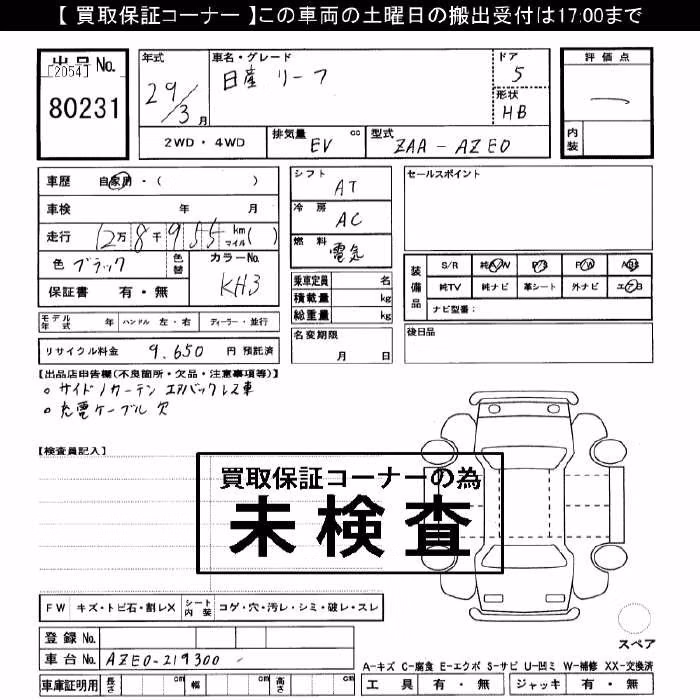 【 買取保証コーナー 】この車両の土曜日の搬出受付は17:00まで
出品No.
[2054]
80231
年式
29/3 月
車名・グレード
日産 リーフ
ドア
5
形状
HB
評価点
内装
2WD・4WD
排気量 cc
EV
型式
ZAA-AZE0
車歴 自家用・( )
車検 年 月
走行 12万 8千 955 km マイル( )
色 ブラック
色替
カラーNo.
KH3
保証書 有・無
シフト
AT
冷房
AC
燃料
電気
乗車定員 名
積載量 kg
総重量 kg
セールスポイント
装備品
S/R 純A/W P/S P/W ABS
純TV 純ナビ 革シート 外ナビ エアB
ナビ型番:
モデル年式 年 ハンドル 左・右 ディーラー・並行
リサイクル料金 9,650 円 預託済
名変期限
月 日
後日品
【出品店申告欄(不良箇所・欠品・注意事項等)】
○ サイド/カーテン エアバックレス車
○ 充電ケーブル 欠
【検査員記入】
買取保証コーナーの為
未検査
FW キズ・トビ石・割レX
シート内装 コゲ・穴・汚レ・シミ・破レ・スレ
登録No.
車台No. AZE0-219300
車庫証明用 長さ cm 幅 cm 高さ cm
スペア
A-キズ C-腐食 E-エクボ S-サビ U-凹ミ W-補修 XX-交換済
工具 有・無 ジャッキ 有・無